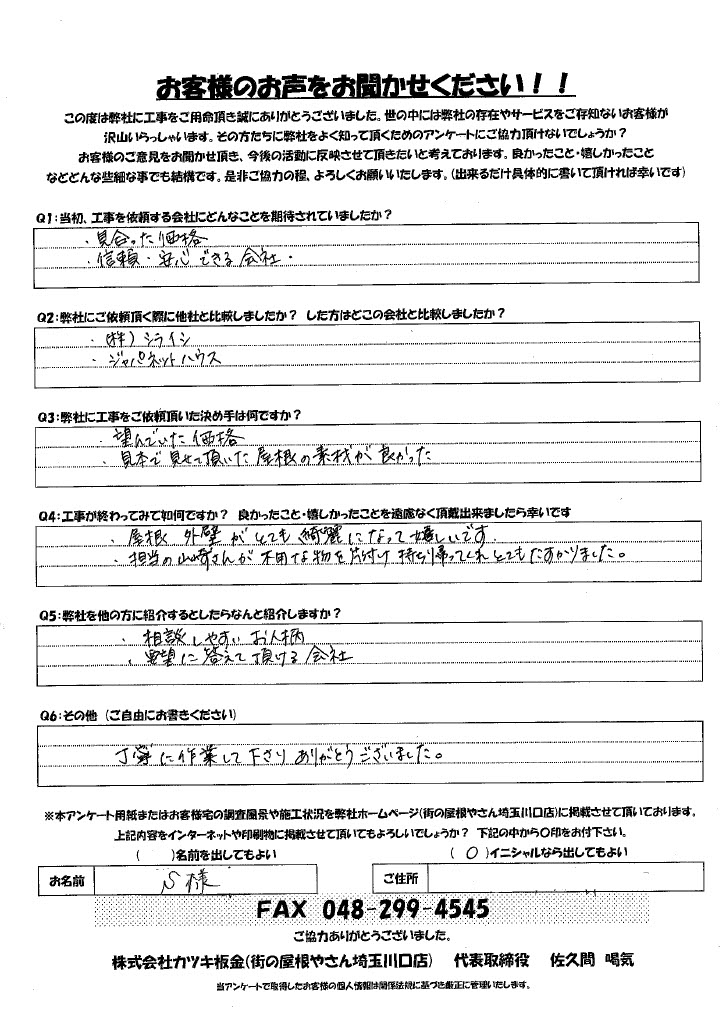 お客様のお声をお聞かせください！！
この度は弊社に工事をご用命頂き誠にありがとうございました。世の中には弊社の存在やサービスをご存知ないお客様が
沢山いらっしゃいます。その方たちに弊社をよく知って頂くためのアンケートにご協力頂けないでしょうか？
お客様のご意見をお聞かせ頂き、今後の活動に反映させて頂きたいと考えております。良かったこと・嬉しかったこと
などどんな些細な事でも結構です。是非ご協力の程、よろしくお願いいたします。（出来るだけ具体的に書いて頂ければ幸いです）
Q1：当初、工事を依頼する会社にどんなことを期待されていましたか？
・見合った価格
・信頼・安心できる会社・
Q2：弊社にご依頼頂く際に他社と比較しましたか？ した方はどこの会社と比較しましたか？
・（株）シライシ
・ジャパネットハウス
Q3：弊社に工事をご依頼頂いた決め手は何ですか？
・望んでいた価格
・見本で見せて頂いた屋根の素材が良かった
Q4：工事が終わってみて如何ですか？ 良かったこと・嬉しかったことを遠慮なく頂戴出来ましたら幸いです
・屋根 外壁がとても綺麗になって嬉しいです
・担当の山崎さんが不用な物を片付け持ち帰ってくれとてもたすかりました。
Q5：弊社を他の方に紹介するとしたらなんと紹介しますか？
・相談しやすいお人柄
・要望に答えて頂ける会社
Q6：その他（ご自由にお書きください）
丁寧に作業して下さりありがとうございました。
※本アンケート用紙またはお客様宅の調査風景や施工状況を弊社ホームページ（街の屋根やさん埼玉川口店）に掲載させて頂いております。
上記内容をインターネットや印刷物に掲載させて頂いてもよろしいでしょうか？ 下記の中から〇印をお付下さい。
（　　）名前を出してもよい （ 〇 ）イニシャルなら出してもよい
お名前 S様 ご住所
FAX 048-299-4545
ご協力ありがとうございました。
株式会社カツキ板金（街の屋根やさん埼玉川口店） 代表取締役 佐久間 喝気
当アンケートで取得したお客様の個人情報は関係法規に基づき厳正に管理いたします。